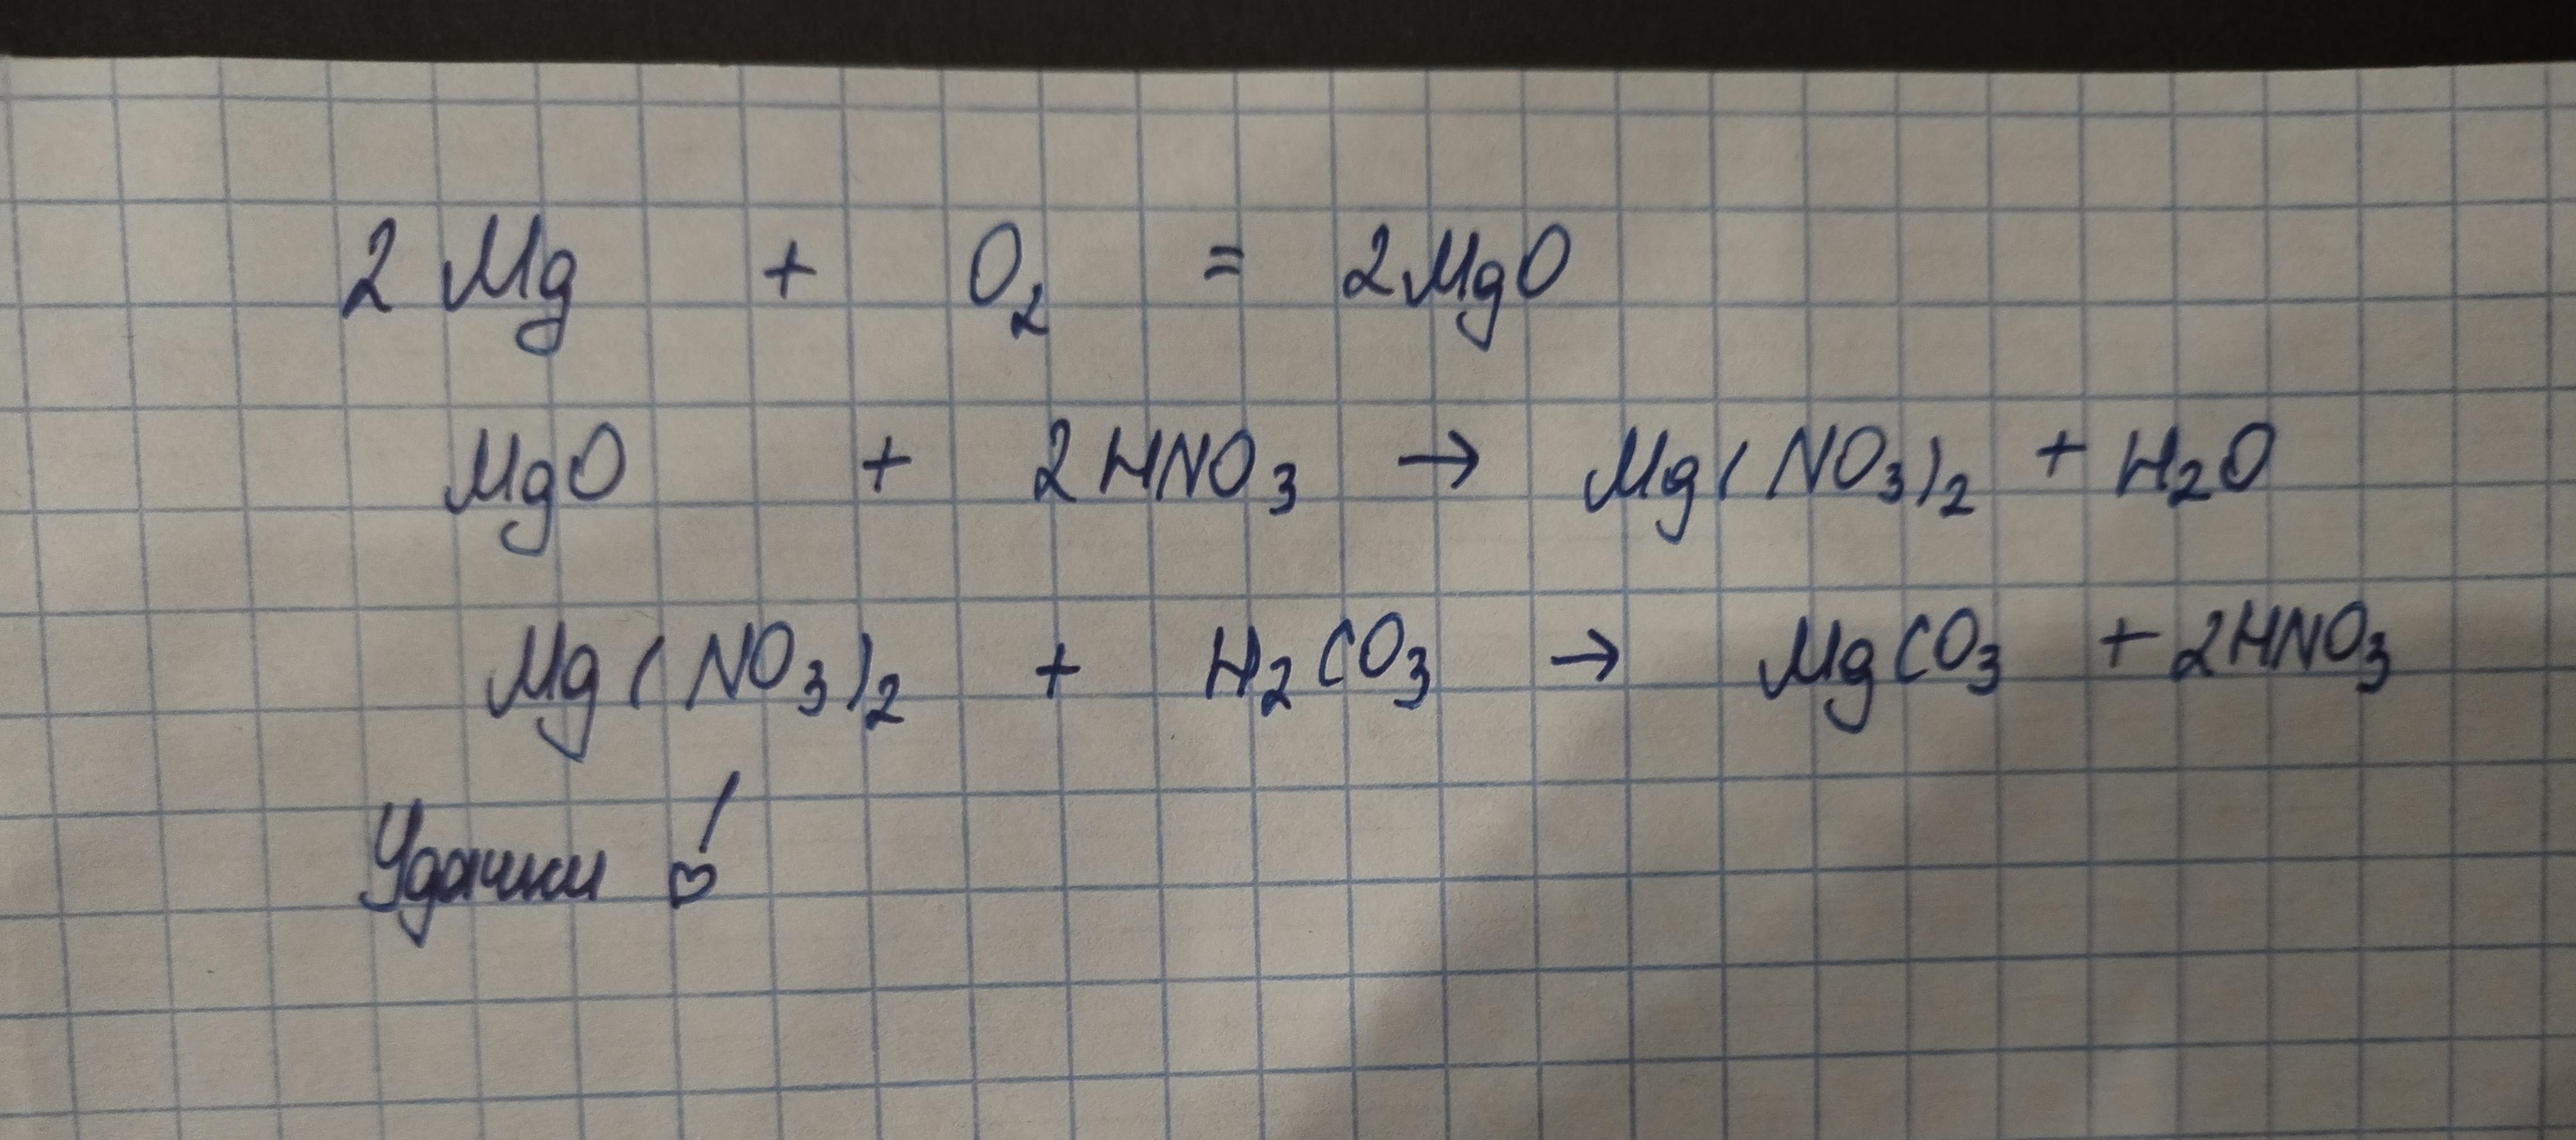 2 Mg + O₂ = 2MgO
MgO + 2HNO₃ → Mg(NO₃)₂ + H₂O
Mg(NO₃)₂ + H₂CO₃ → MgCO₃ + 2HNO₃
Удачки !